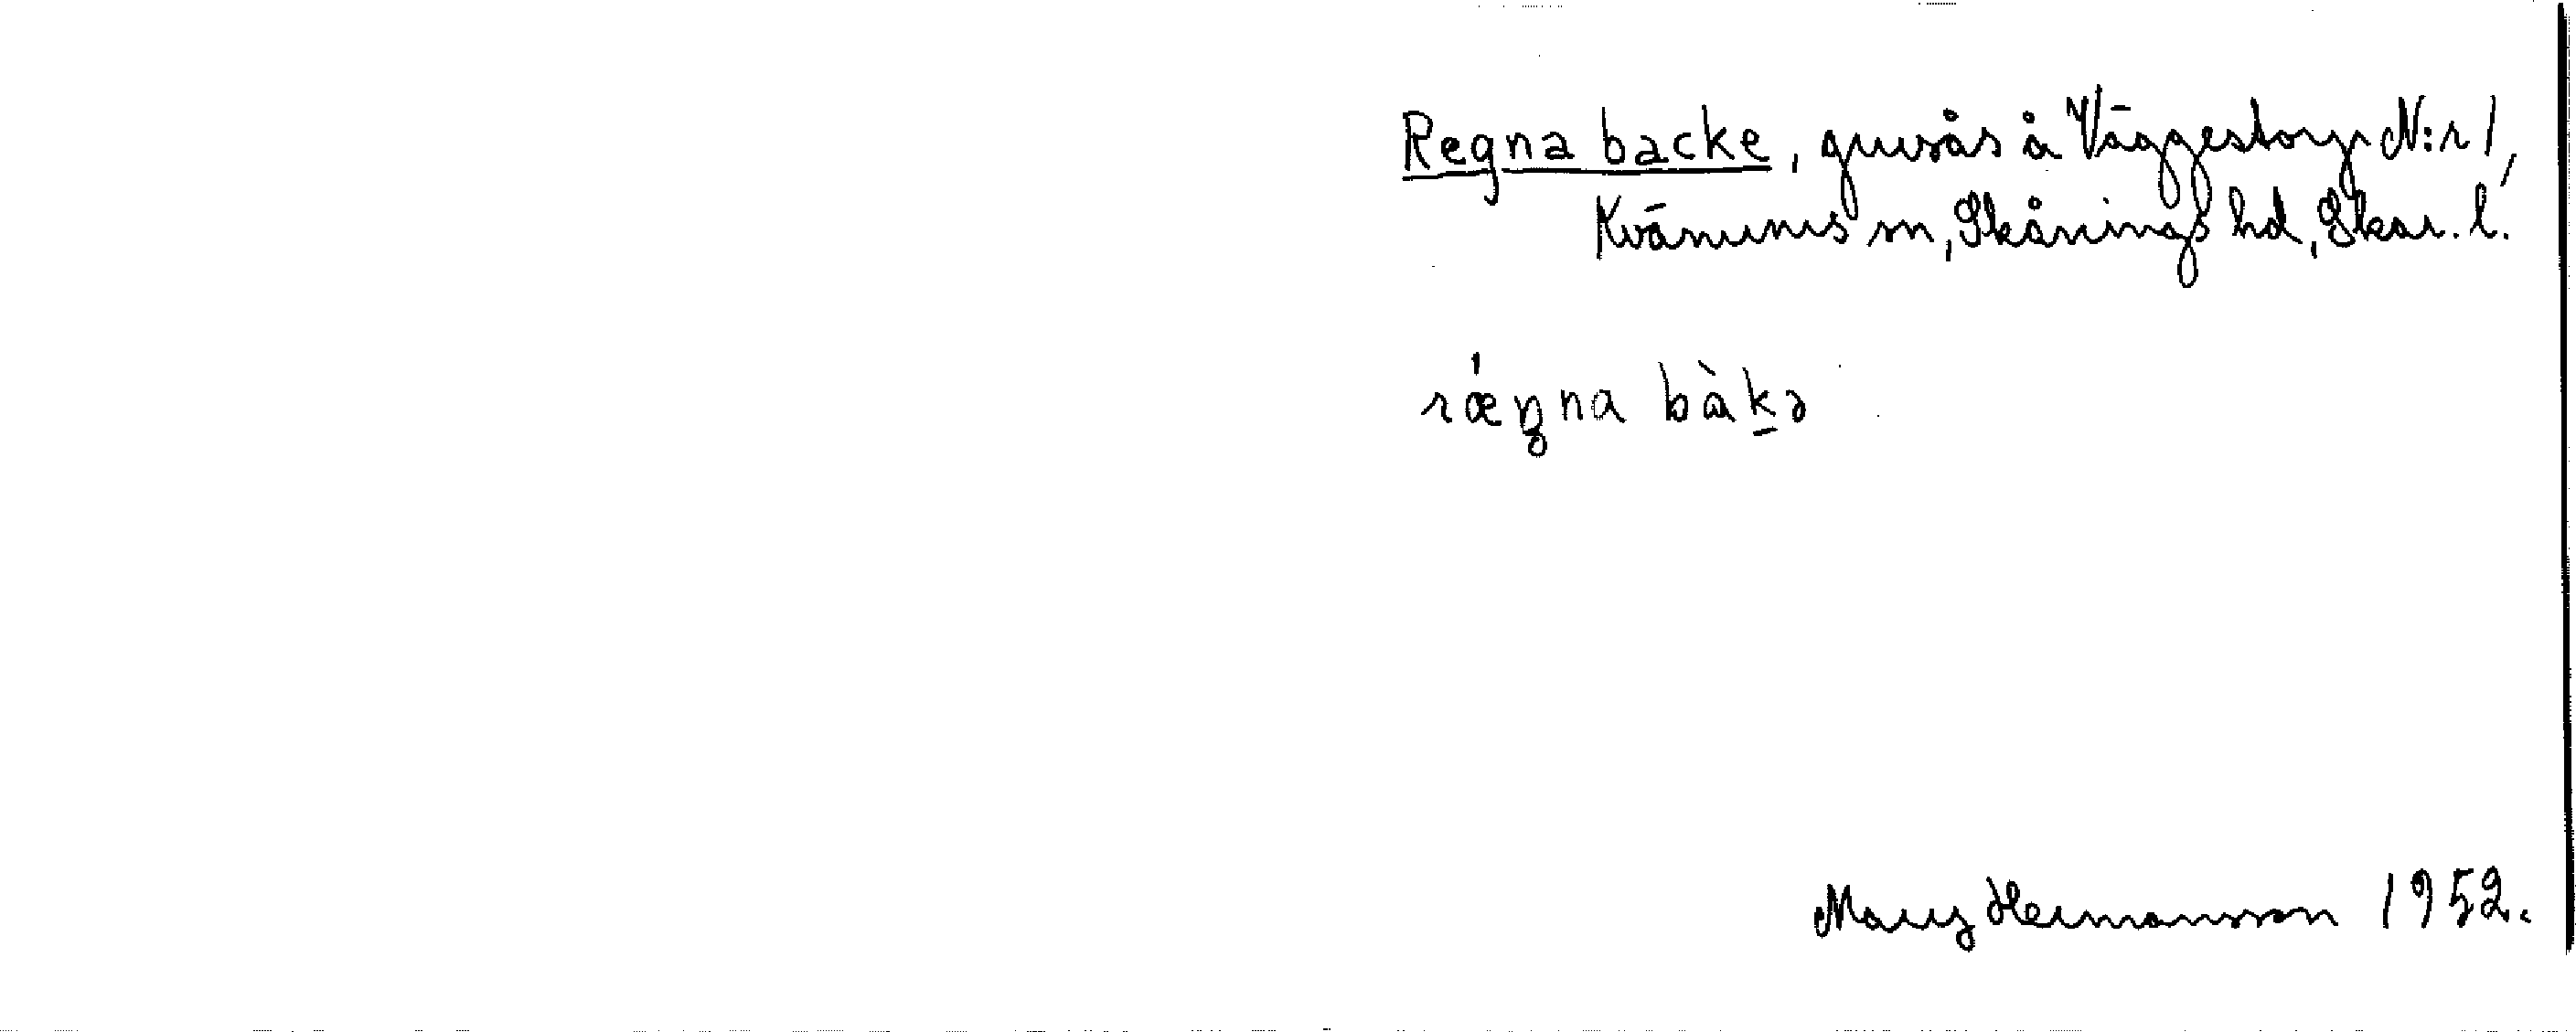 Regna backe, grusås å Väggestorp N:r 1,
Kvänums sn, Skånings hd, Skar. l.
rǽŋna bàkə
Mary Hermansson 1952.